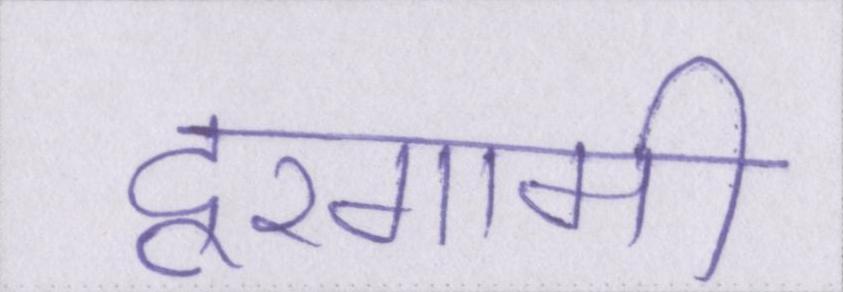 दूरगामी